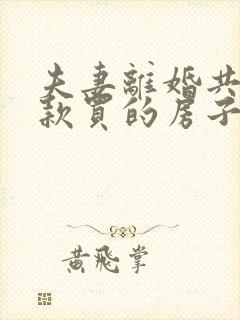 夫妻離婚共
款買的房子
黃飛掌